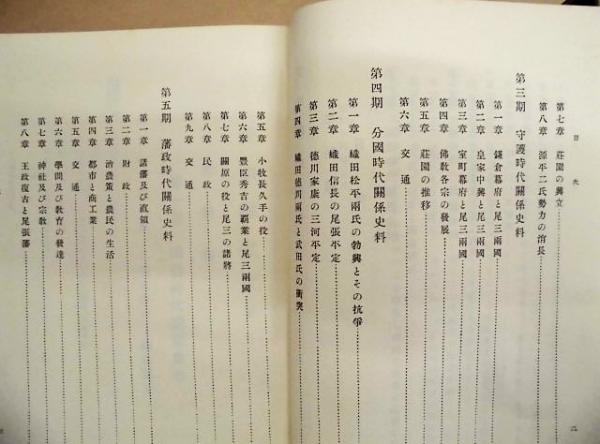 目次
第七章 莊園の興立
第八章 源平二氏勢力の消長
第三期 守護時代關係史料
第一章 鎌倉幕府と尾三兩國
第二章 皇家中興と尾三兩國
第三章 室町幕府と尾三兩國
第四章 佛敎各宗の發展
第五章 莊園の推移
第六章 交通
第四期 分國時代關係史料
第一章 織田松平兩氏の勃興とその抗爭
第二章 織田信長の尾張平定
第三章 德川家康の三河平定
第四章 織田德川兩氏と武田氏の衝突
二
第五章 小牧長久手の役
第六章 豐臣秀吉の覇業と尾三兩國
第七章 關原の役と尾三の諸將
第八章 民政
第九章 交通
第五期 藩政時代關係史料
第一章 諸藩及び直領
第二章 財政
第三章 治農策と農民の生活
第四章 都市と商工業
第五章 交通
第六章 學問及び敎育の發達
第七章 神社及び宗敎
第八章 王政復古と尾張藩